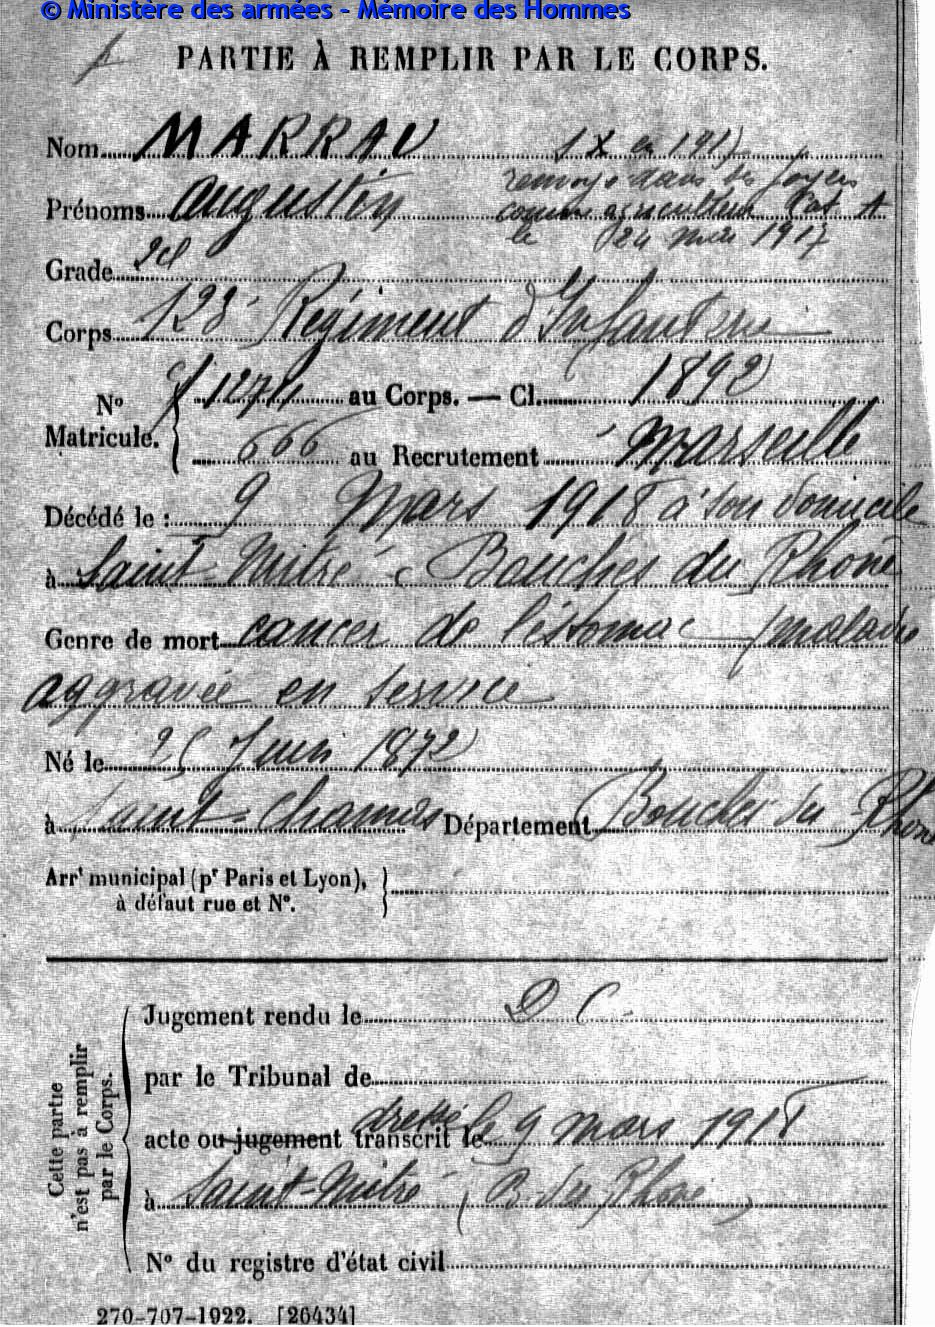 © Ministère des armées - Mémoire des Hommes
PARTIE À REMPLIR PAR LE CORPS.
Nom MARRAU
en 1917
renvoyé dans ses foyers
Prénoms Augustin
comme agriculteur Cat A
le 24 mai 1917
Grade
Corps 128e Régiment d'Infanterie
No Matricule. au Corps. — Cl. 1892
666 au Recrutement Marseille
Décédé le : 9 Mars 1918 à son domicile
à Saint Mitre Bouches du Rhône
Genre de mort cancer de l'estomac (maladie
aggravée en service
Né le 25 Juin 1872
à Saint-Chamas Département Bouches du Rhône
Arrt municipal (pr Paris et Lyon), à défaut rue et No.
Cette partie n'est pas à remplir par le Corps.
Jugement rendu le D C
par le Tribunal de
dressé
acte ou jugement transcrit le 9 mars 1918
à Saint-Mitre (B. du Rhône)
No du registre d'état civil
270-707-1922. [26434]